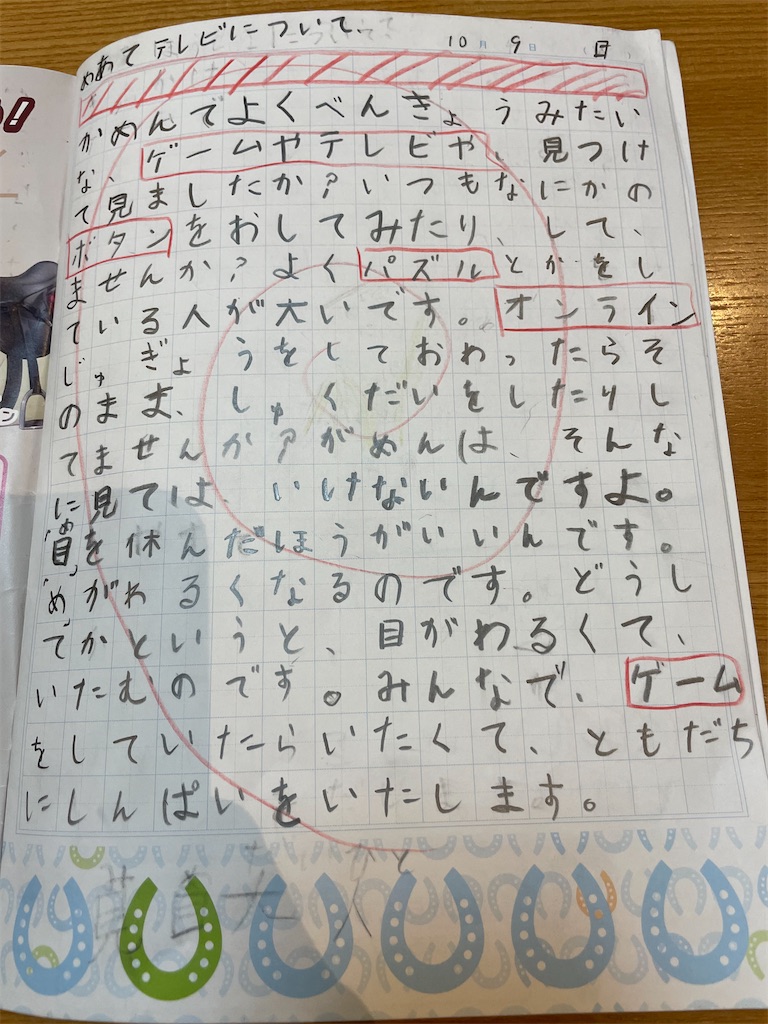 めあて テレビについて、 10月9日(日)
かめんでよくべんきょうみたい
な、ゲームやテレビや、見つけ
て見ましたか?いつもなにかの
ボタンをおしてみたり、して、
ませんか?よくパズルとかをし
ている人が大いです。オンライン
じゅぎょうをしておわったらそ
のまま、しゅくだいをしたりし
てませんか?がめんは、そんな
に見ては、いけないんですよ。
「目」を休んだほうがいいんです。
「め」がわるくなるのです。どうし
てかというと、目がわるくて、
いたむのです。みんなで、ゲーム
をしていたらいたくて、ともだち
にしんぱいをいたします。